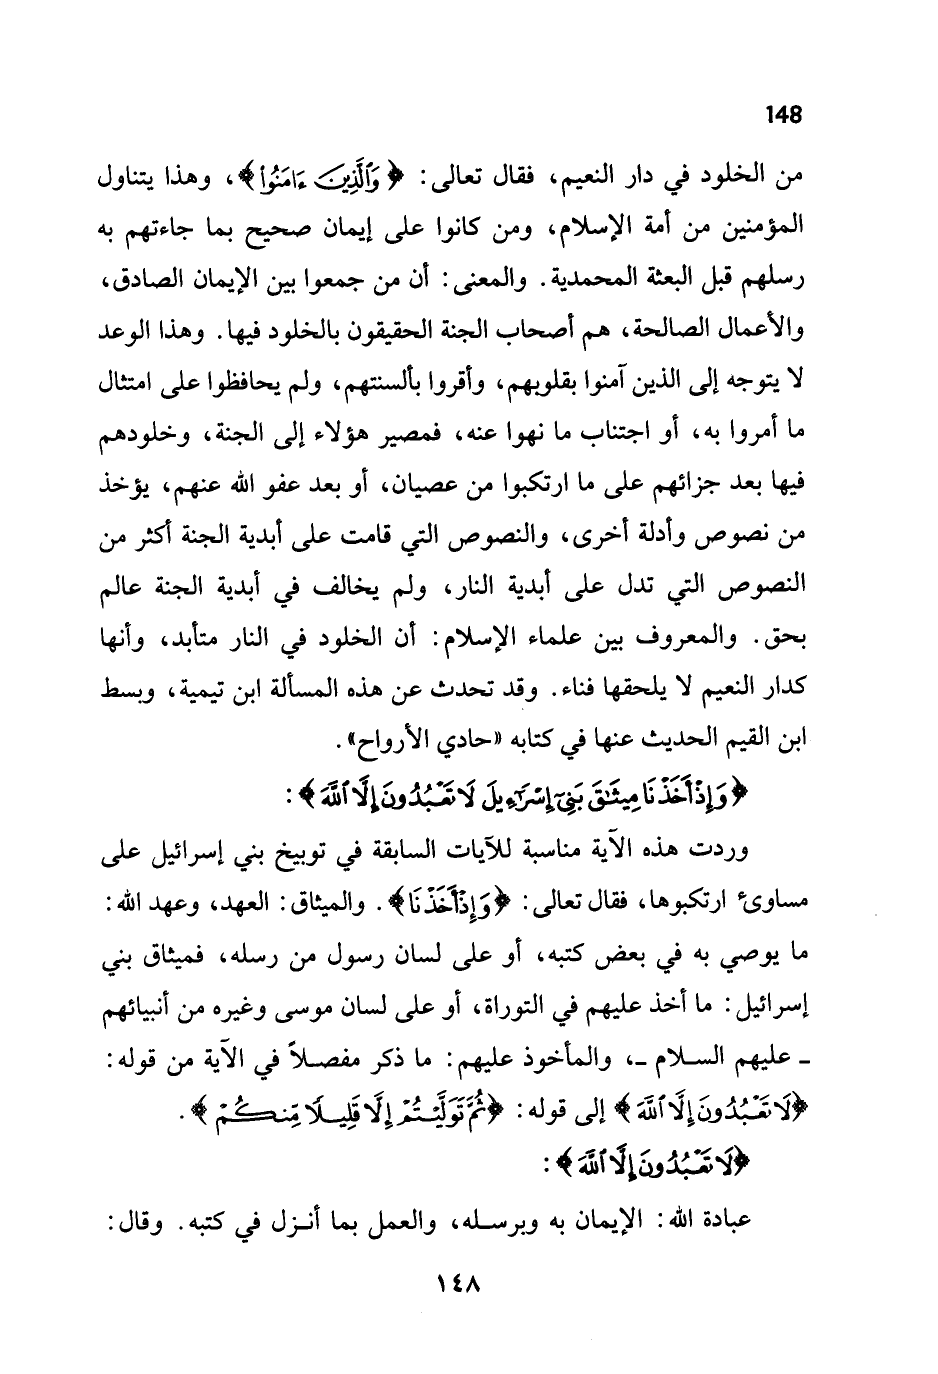 148
من الخلود في دار النعيم، فقال تعالى: ﴿وَٱلَّذِينَ ءَامَنُوا۟﴾، وهذا يتناول
المؤمنين من أمة الإسلام، ومن كانوا على إيمان صحيح بما جاءتهم به
رسلهم قبل البعثة المحمدية. والمعنى: أن من جمعوا بين الإيمان الصادق،
والأعمال الصالحة، هم أصحاب الجنة الحقيقون بالخلود فيها. وهذا الوعد
لا يتوجه إلى الذين آمنوا بقلوبهم، وأقروا بألسنتهم، ولم يحافظوا على امتثال
ما أمروا به، أو اجتناب ما نهوا عنه، فمصير هؤلاء إلى الجنة، وخلودهم
فيها بعد جزائهم على ما ارتكبوا من عصيان، أو بعد عفو الله عنهم، يؤخذ
من نصوص وأدلة أخرى، والنصوص التي قامت على أبدية الجنة أكثر من
النصوص التي تدل على أبدية النار، ولم يخالف في أبدية الجنة عالم
بحق. والمعروف بين علماء الإسلام: أن الخلود في النار متأبد، وأنها
كدار النعيم لا يلحقها فناء. وقد تحدث عن هذه المسألة ابن تيمية، وبسط
ابن القيم الحديث عنها في كتابه «حادي الأرواح».
﴿وَإِذْ أَخَذْنَا مِيثَٰقَ بَنِىٓ إِسْرَٰٓءِيلَ لَا تَعْبُدُونَ إِلَّا ٱللَّهَ﴾:
وردت هذه الآية مناسبة للآيات السابقة في توبيخ بني إسرائيل على
مساوئ ارتكبوها، فقال تعالى: ﴿وَإِذْ أَخَذْنَا﴾. والميثاق: العهد، وعهد الله:
ما يوصي به في بعض كتبه، أو على لسان رسول من رسله، فميثاق بني
إسرائيل: ما أخذ عليهم في التوراة، أو على لسان موسى وغيره من أنبيائهم
ـ عليهم السلام ـ، والمأخوذ عليهم: ما ذكر مفصلاً في الآية من قوله:
﴿لَا تَعْبُدُونَ إِلَّا ٱللَّهَ﴾ إلى قوله: ﴿ثُمَّ تَوَلَّيْتُمْ إِلَّا قَلِيلًا مِّنكُمْ﴾.
﴿لَا تَعْبُدُونَ إِلَّا ٱللَّهَ﴾:
عبادة الله: الإيمان به وبرسله، والعمل بما أنزل في كتبه. وقال:
١٤٨